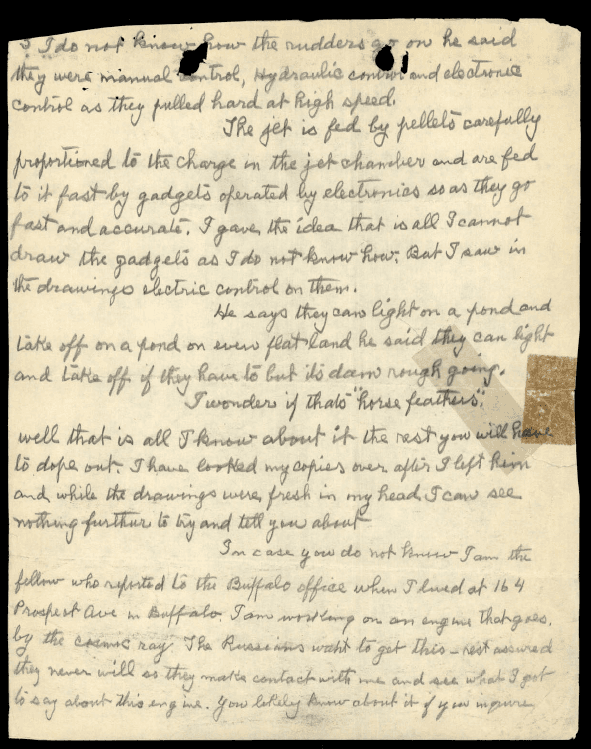 5 I do not know how the rudders go on he said
they were manual control, Hydraulic control and electronic
control as they pulled hard at high speed.
The jet is fed by pellets carefully
proportioned to the charge in the jet chamber and are fed
to it fast by gadgets operated by electronics so as they go
fast and accurate. I gave the idea that is all I cannot
draw the gadgets as I do not know how. But I saw in
the drawings electric control on them.
He says they can light on a pond and
take off on a pond or even flat land he said they can light
and take off if they have to but its dam rough going.
I wonder if thats "horse feathers".
well that is all I know about it the rest you will have
to dope out. I have looked my copies over after I left him
and while the drawings were fresh in my head I can see
nothing further to try and tell you about
In case you do not know I am the
fellow who reported to the Buffalo office when I lived at 164
Prospect Ave in Buffalo. I am working on an engine that goes
by the cosmic ray. The Russians want to get this - rest assured
they never will so they make contact with me and see what I got
to say about this engine. You likely know about it if you inquire